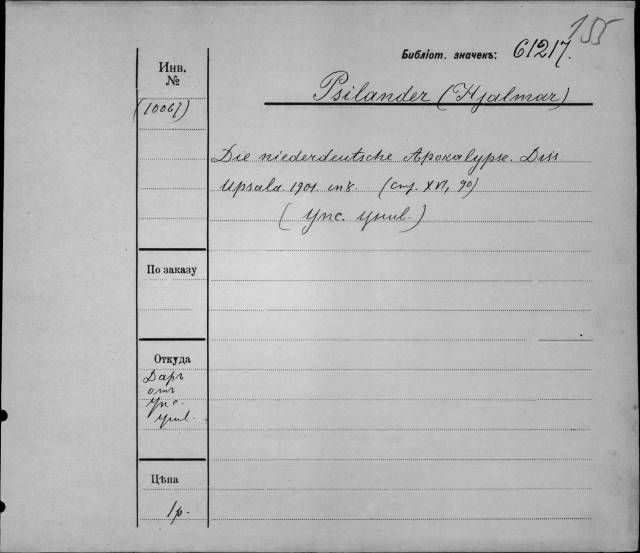 155
Библіот. значекъ: 61217.
Инв.
№
(10067)
Psilander (Hjalmar)
Die niederdeutsche Apokalypse. Diss
Upsala. 1901. in 8. (стр. XVI, 90)
(Упс. Унив.)
По заказу
Откуда
Даръ
отъ
Упс.
Унив.
Цѣна
1 р.